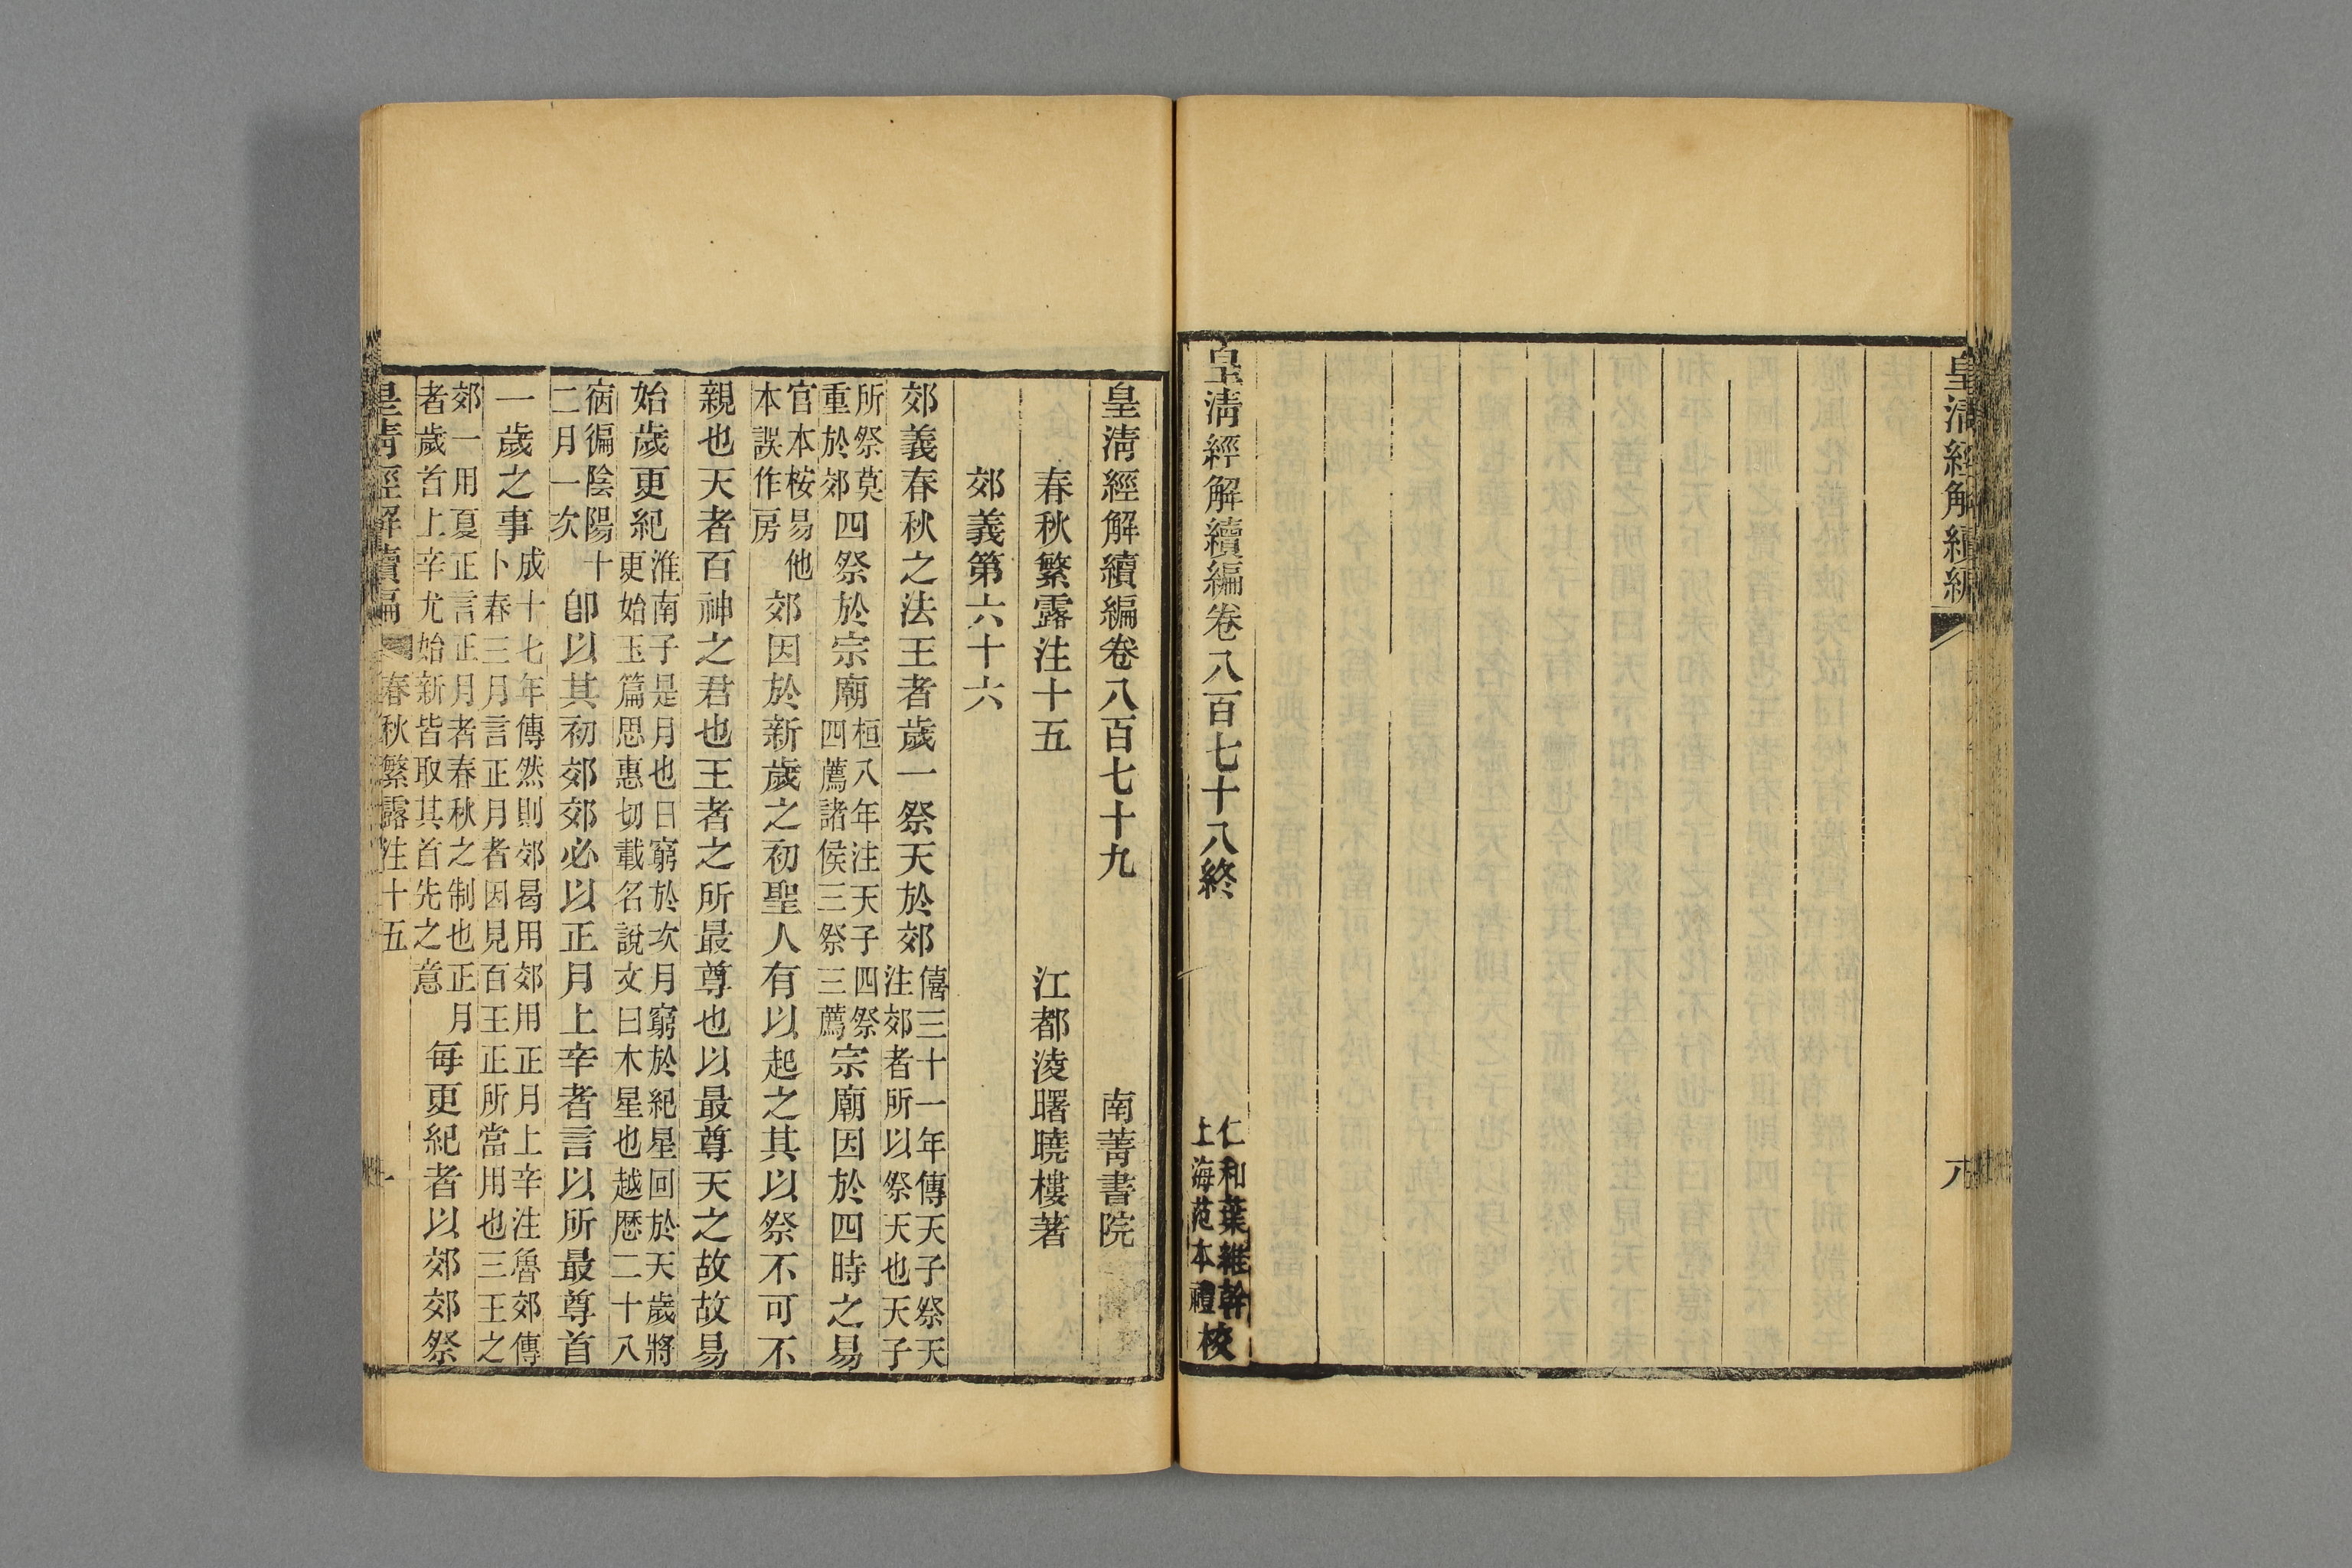 皇清經解續編
八
皇清經解續編卷八百七十八終
仁和葉維幹
上海范本禮
校
皇清經解續編卷八百七十九 南菁書院
春秋繁露注十五 江都淩曙曉樓著
郊義第六十六
郊義春秋之法王者歲一祭天於郊僖三十一年傳天子祭天注郊者所以祭天也天子
所祭莫重於郊四祭於宗廟桓八年注天子四祭四薦諸侯三祭三薦宗廟因於四時之易
官本桉易他本誤作房郊因於新歲之初聖人有以起之其以祭不可不
親也天者百神之君也王者之所最尊也以最尊天之故故易
始歲更紀淮南子是月也日窮於次月窮於紀星回於天歲將更始玉篇思惠切載名說文曰木星也越歴二十八
宿徧陰陽十二月一次卽以其初郊郊必以正月上辛者言以所最尊首
一歲之事成十七年傳然則郊曷用郊用正月上辛注魯郊傳卜春三月言正月者因見百王正所當用也三王之
郊一用夏正言正月者春秋之制也正月者歲首上辛尤始新皆取其首先之意每更紀者以郊郊祭
皇清經解續編 春秋繁露注十五 一